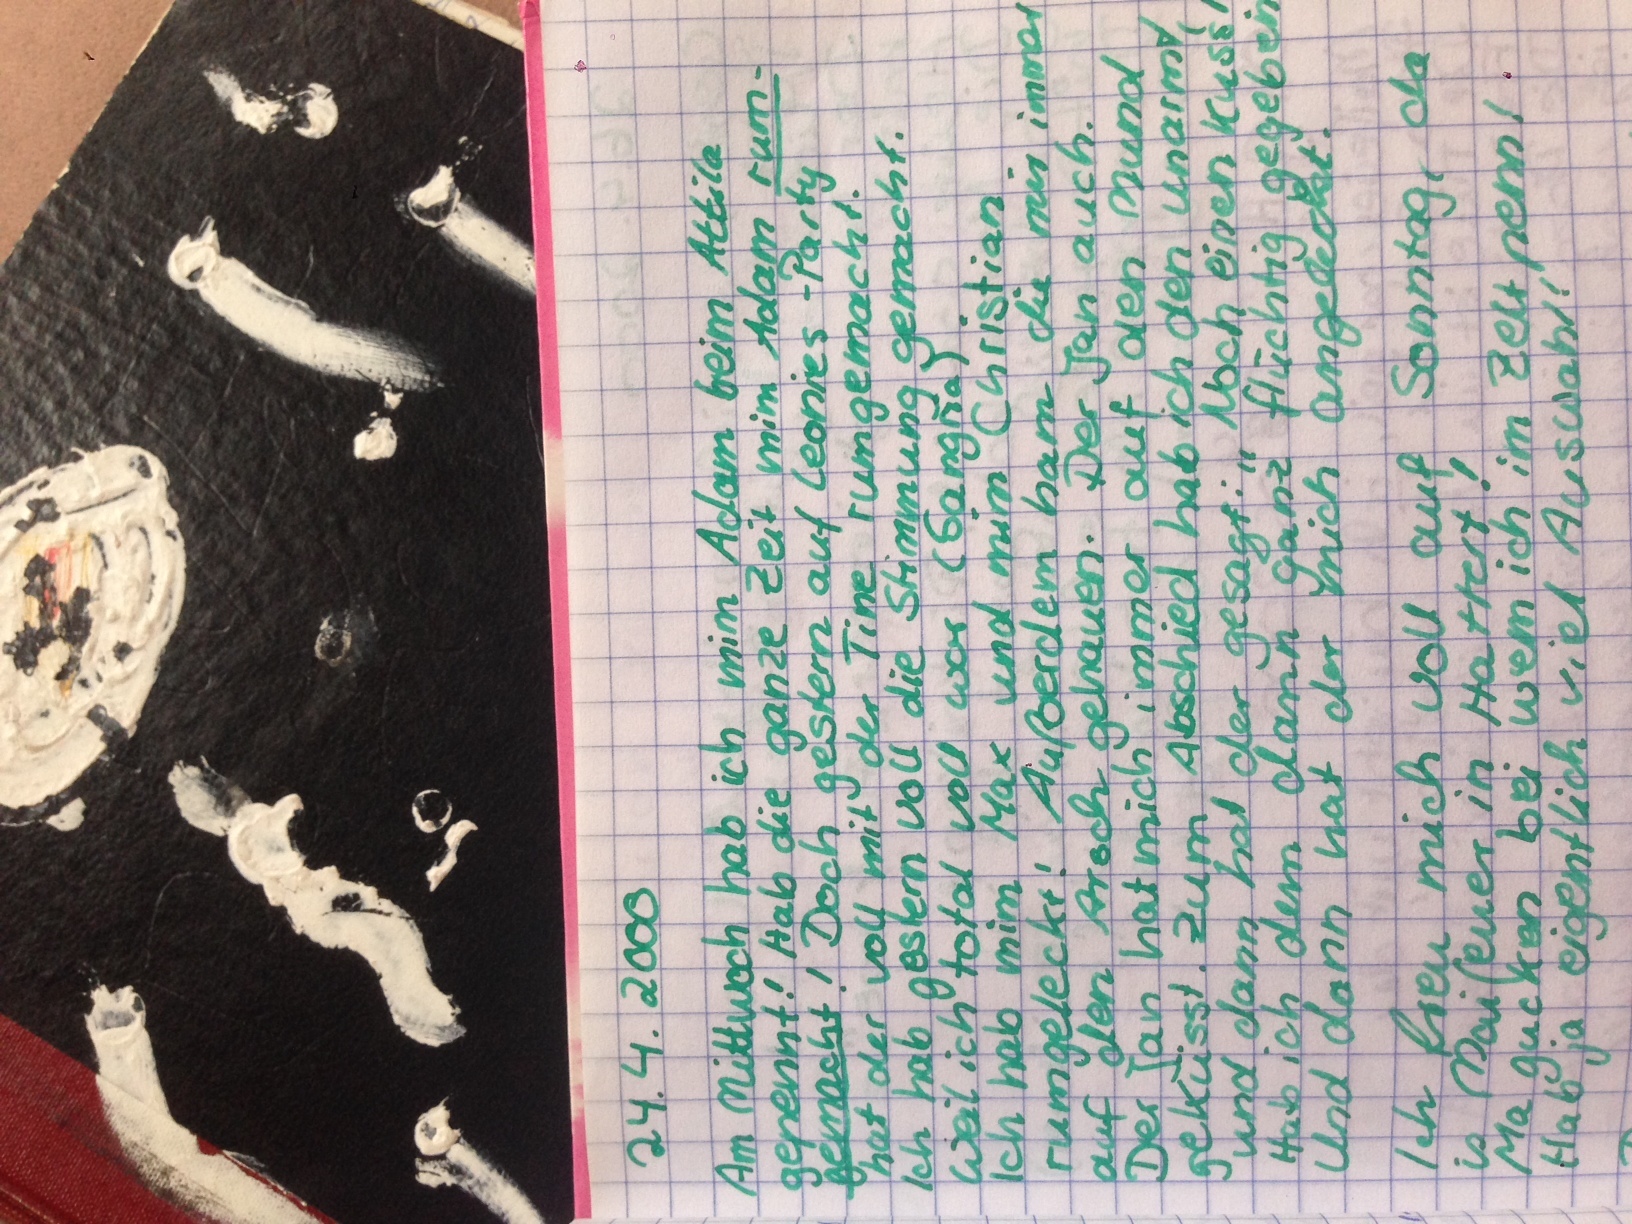 24.4.2003
Am Mittwoch hab ich mim Adam beim Attila
gepennt! Hab die ganze Zeit mim Adam rum-
gemacht! Doch gestern auf Leonies-Party
hat der voll mit der Tine rumgemacht.
Ich hab gestern voll die Stimmung gemacht.
Weil ich total voll war (Sangria)
Ich hab mim Max und mim Christian
rumgeleckt! Außerdem ham die mir immer
auf den Arsch gehauen. Der Jan auch.
Der Jan hat mich immer auf den Mund
geküsst. Zum Abschied hab ich den umarmt
und dann hat der gesagt: "Noch einen Kuss!
Hab ich dem dann ganz flüchtig gegeben
Und dann hat der mich angeleckt.
Ich freu mich voll auf Sonntag, da
is Maifeuer in Hattert!
Ma gucken bei wem ich im Zelt penn!
Hab ja eigentlich viel Auswahl!